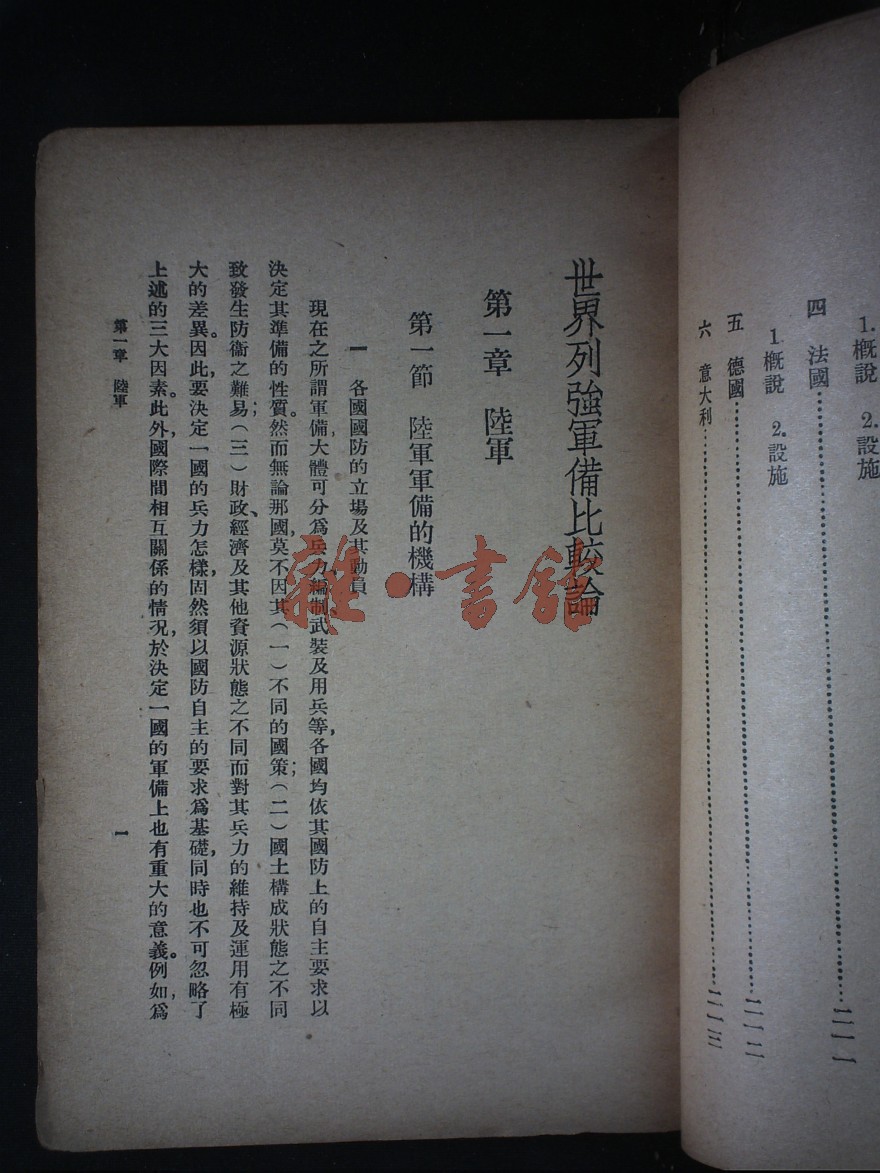 1.概說　2.設施
四　法國……………………二一一
1.概說　2.設施
五　德國……………………二一二
六　意大利……………………二一三
世界列強軍備比較論
第一章　陸軍
第一節　陸軍軍備的機構
一　各國國防的立場及其動員
現在之所謂軍備，大體可分爲兵力、編制、武裝及用兵等，各國均依其國防上的自主要求以
決定其準備的性質。然而無論那國，莫不因其（一）不同的國策；（二）國土構成狀態之不同
致發生防衞之難易；（三）財政、經濟及其他資源狀態之不同而對其兵力的維持及運用有極
大的差異。因此，要決定一國的兵力怎樣，固然須以國防自主的要求爲基礎，同時也不可忽略了
上述的三大因素。此外，國際間相互關係的情況，於決定一國的軍備上也有重大的意義。例如，爲
第一章　陸軍
一
雜·書館